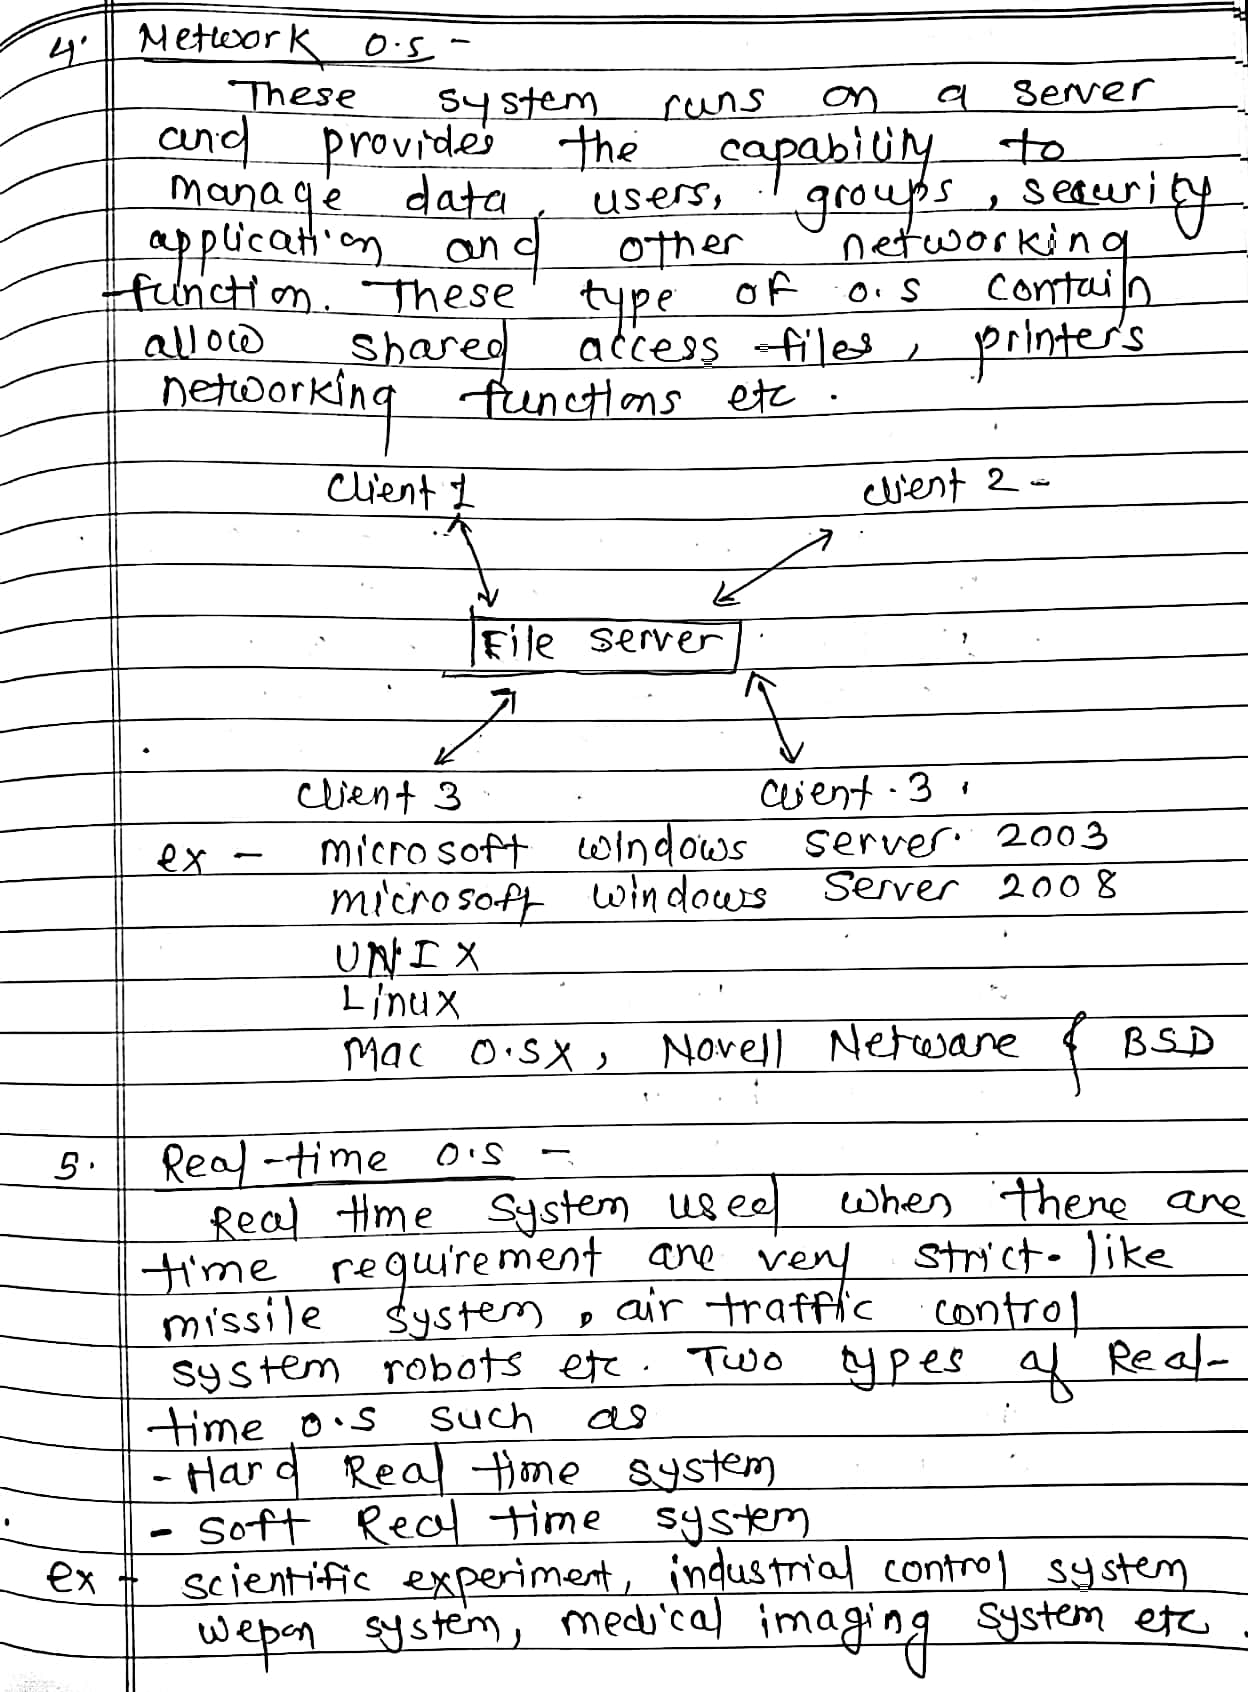 4. Network o.s -
These system runs on a server
and provides the capability to
manage data, users, groups, security
application and other networking
function. These type of o.s contain
allow shared access files, printers
networking functions etc.
Client 1 client 2 -
File server
Client 3 Client.3
ex - microsoft windows server. 2003
microsoft windows Server 2008
UNIX
Linux
Mac O.SX, Novell Netware & BSD
5. Real-time o.s -
Real time System used when there are
time requirement are very strict. like
missile system, air traffic control
system robots etc. Two types of Real-
time o.s such as
- Hard Real time system
- Soft Real time system
ex - scientific experiment, industrial control system
wepon system, medical imaging system etc.